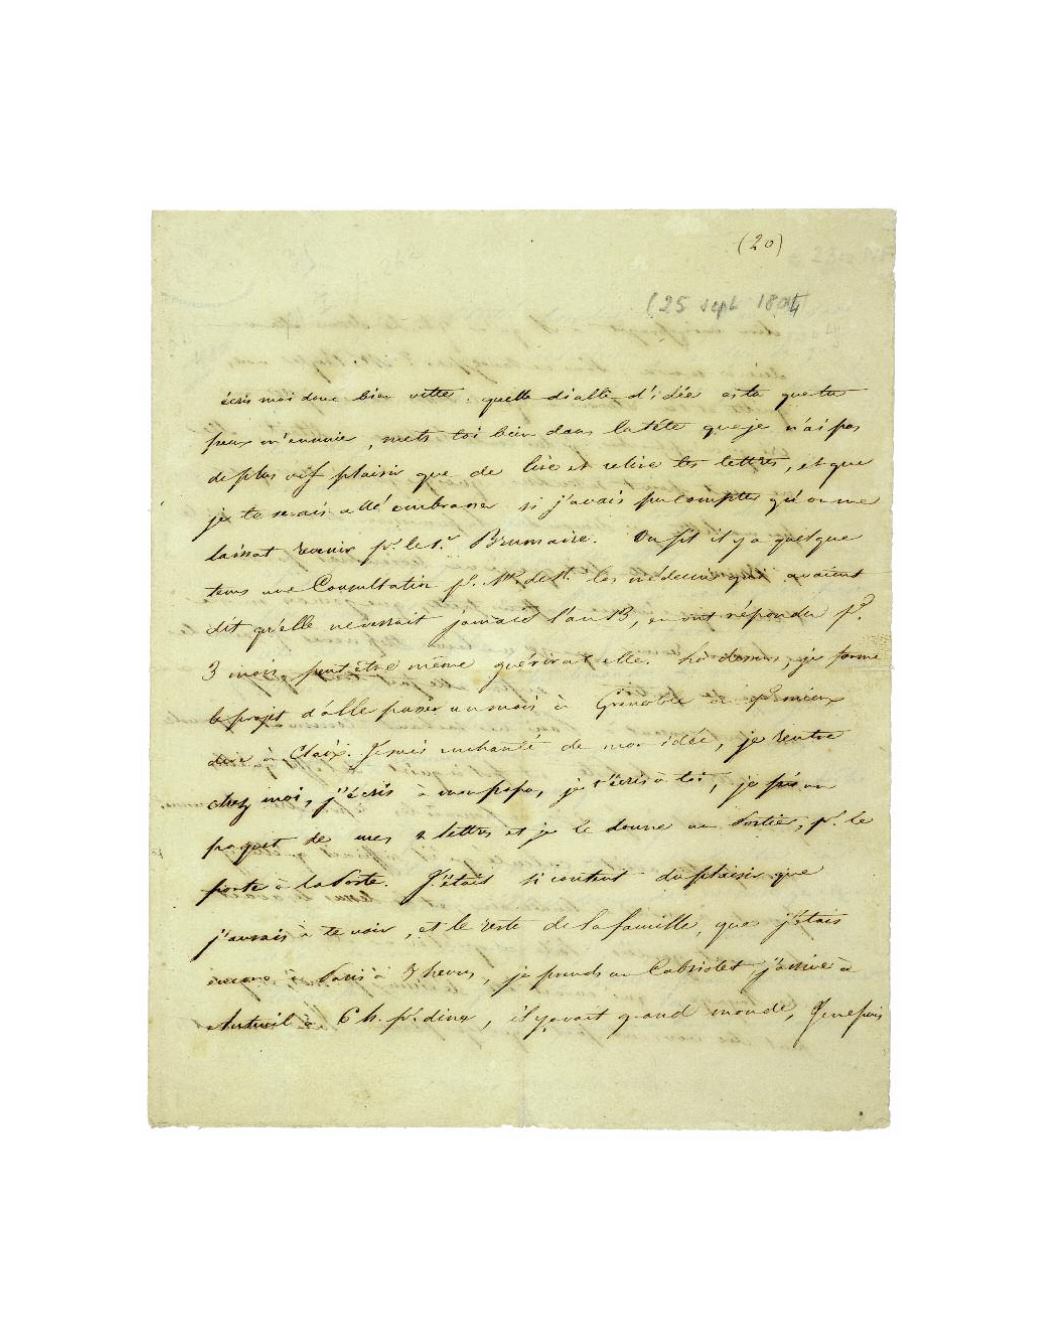 (20)
(25 sept 1804
écris moi donc bien vitte. quelle diable d'idée as tu que tu
peux m'ennuier, mets toi bien dans la tête que je n'ai pas
de plus vif plaisir que de lire et relire tes lettres, et que
je te serais allé embrasser si j'avais pu compter qu'on me
laissat revenir pr. le 1.er Brumaire. On fit il y a quelque
tems une Consultation pr. les médecins qui avaient
dit qu'elle ne verrait jamais l'an 13, en ont répondu pr.
3 mois peut être même guérirat elle. Là dessus, je forme
le projet d'aller passer un mois à Grenoble ou pr. mieux
dire à Claix. Je suis enchanté de mon idée, je rentre
chez moi, j'écris à mon papa, je t'écris à toi, je fais un
paquet de mes 2 lettres et je le donne au Portier, pr. le
porte à la Poste. J'étais si content du plaisir que
j'aurais à te voir, et le reste de la famille, que j'étais
encore à Paris à 5 heures, je prends un Cabriolet, j'arrive à
Auteuil à 6 h. pr. diner, il y avait grand monde, Je ne puis